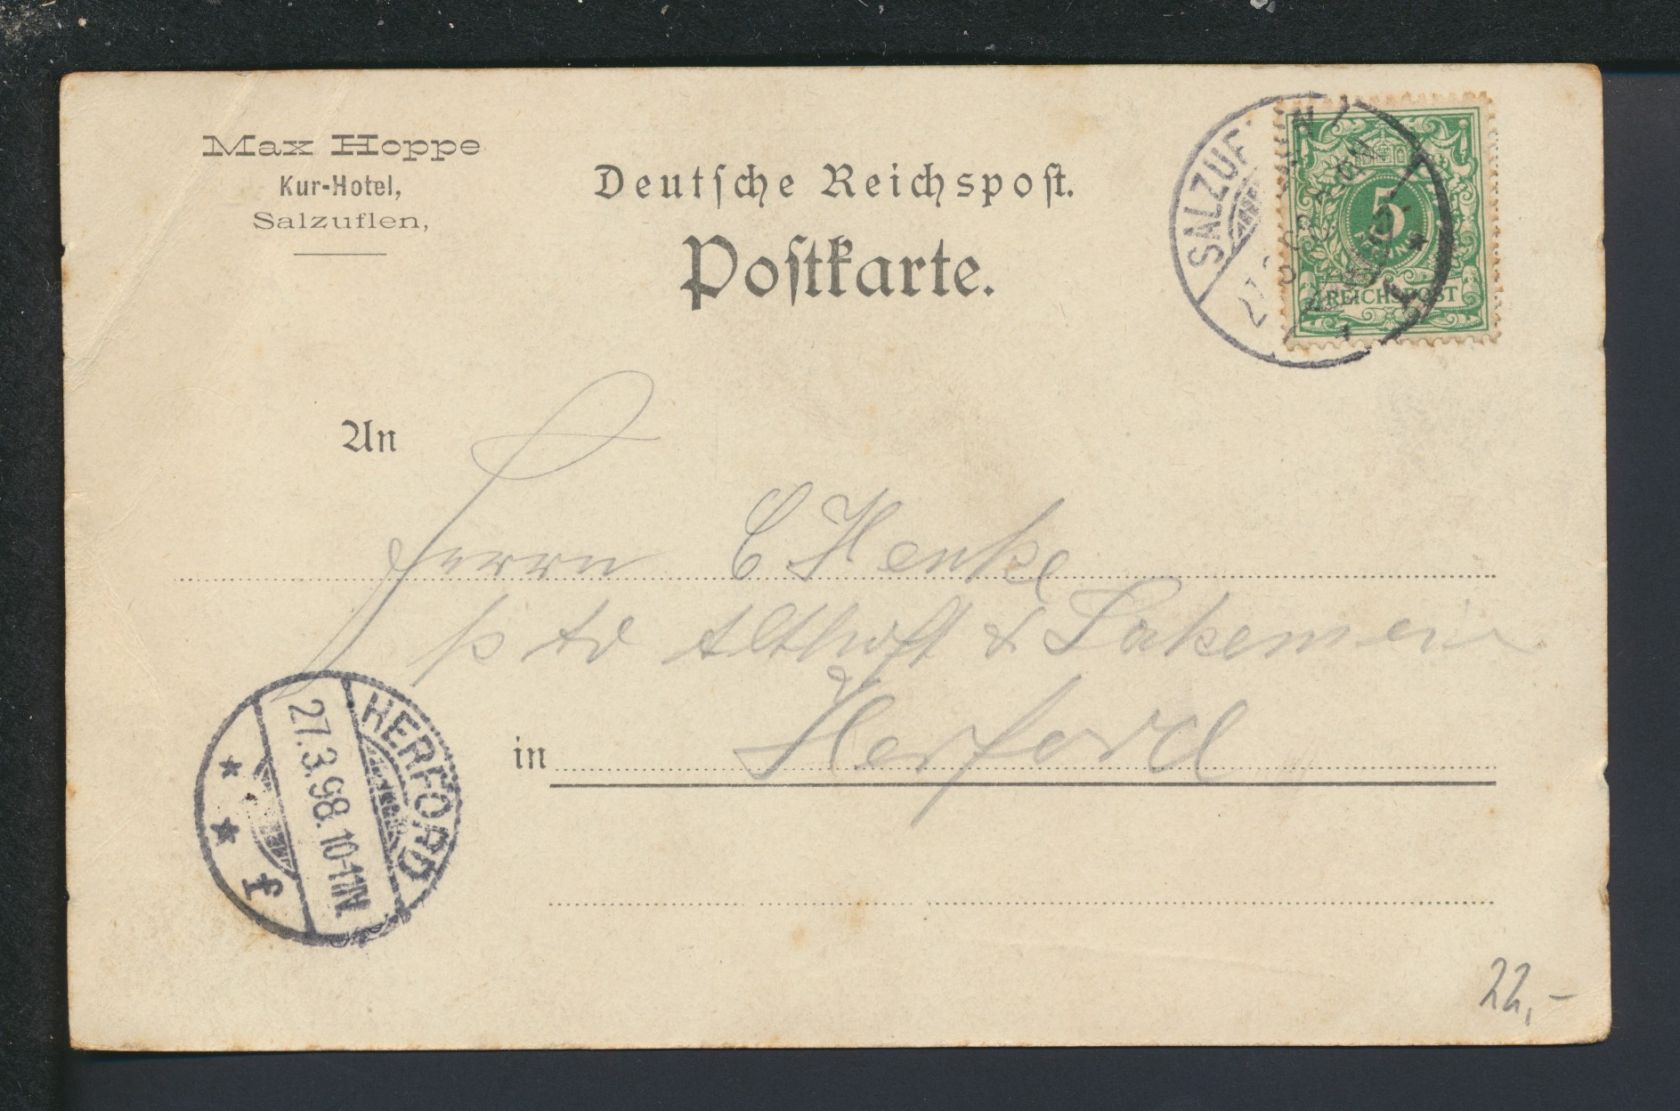 Max Hoppe
Kur-Hotel,
Salzuflen,
Deutsche Reichspost.
Postkarte.
5
REICHSPOST
An
Herrn C Henke
Althoff &
in Herford
HERFORD
27.3.98.10-11N.
* * f
22,-